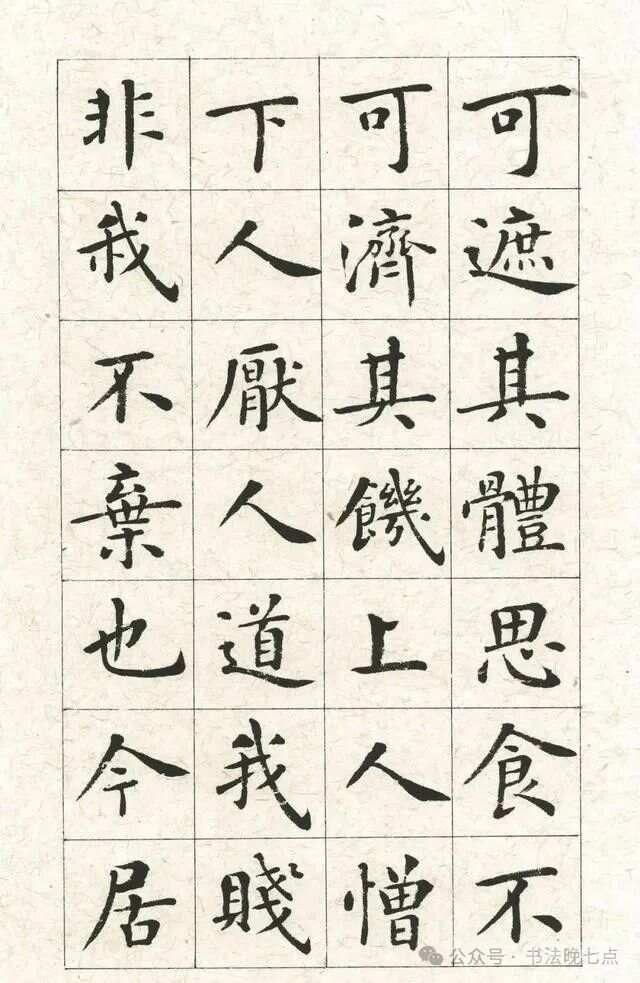 可遮其體思食不
可濟其饑上人憎
下人厭人道我賤
非我不棄也今居
公众号·书法晚七点